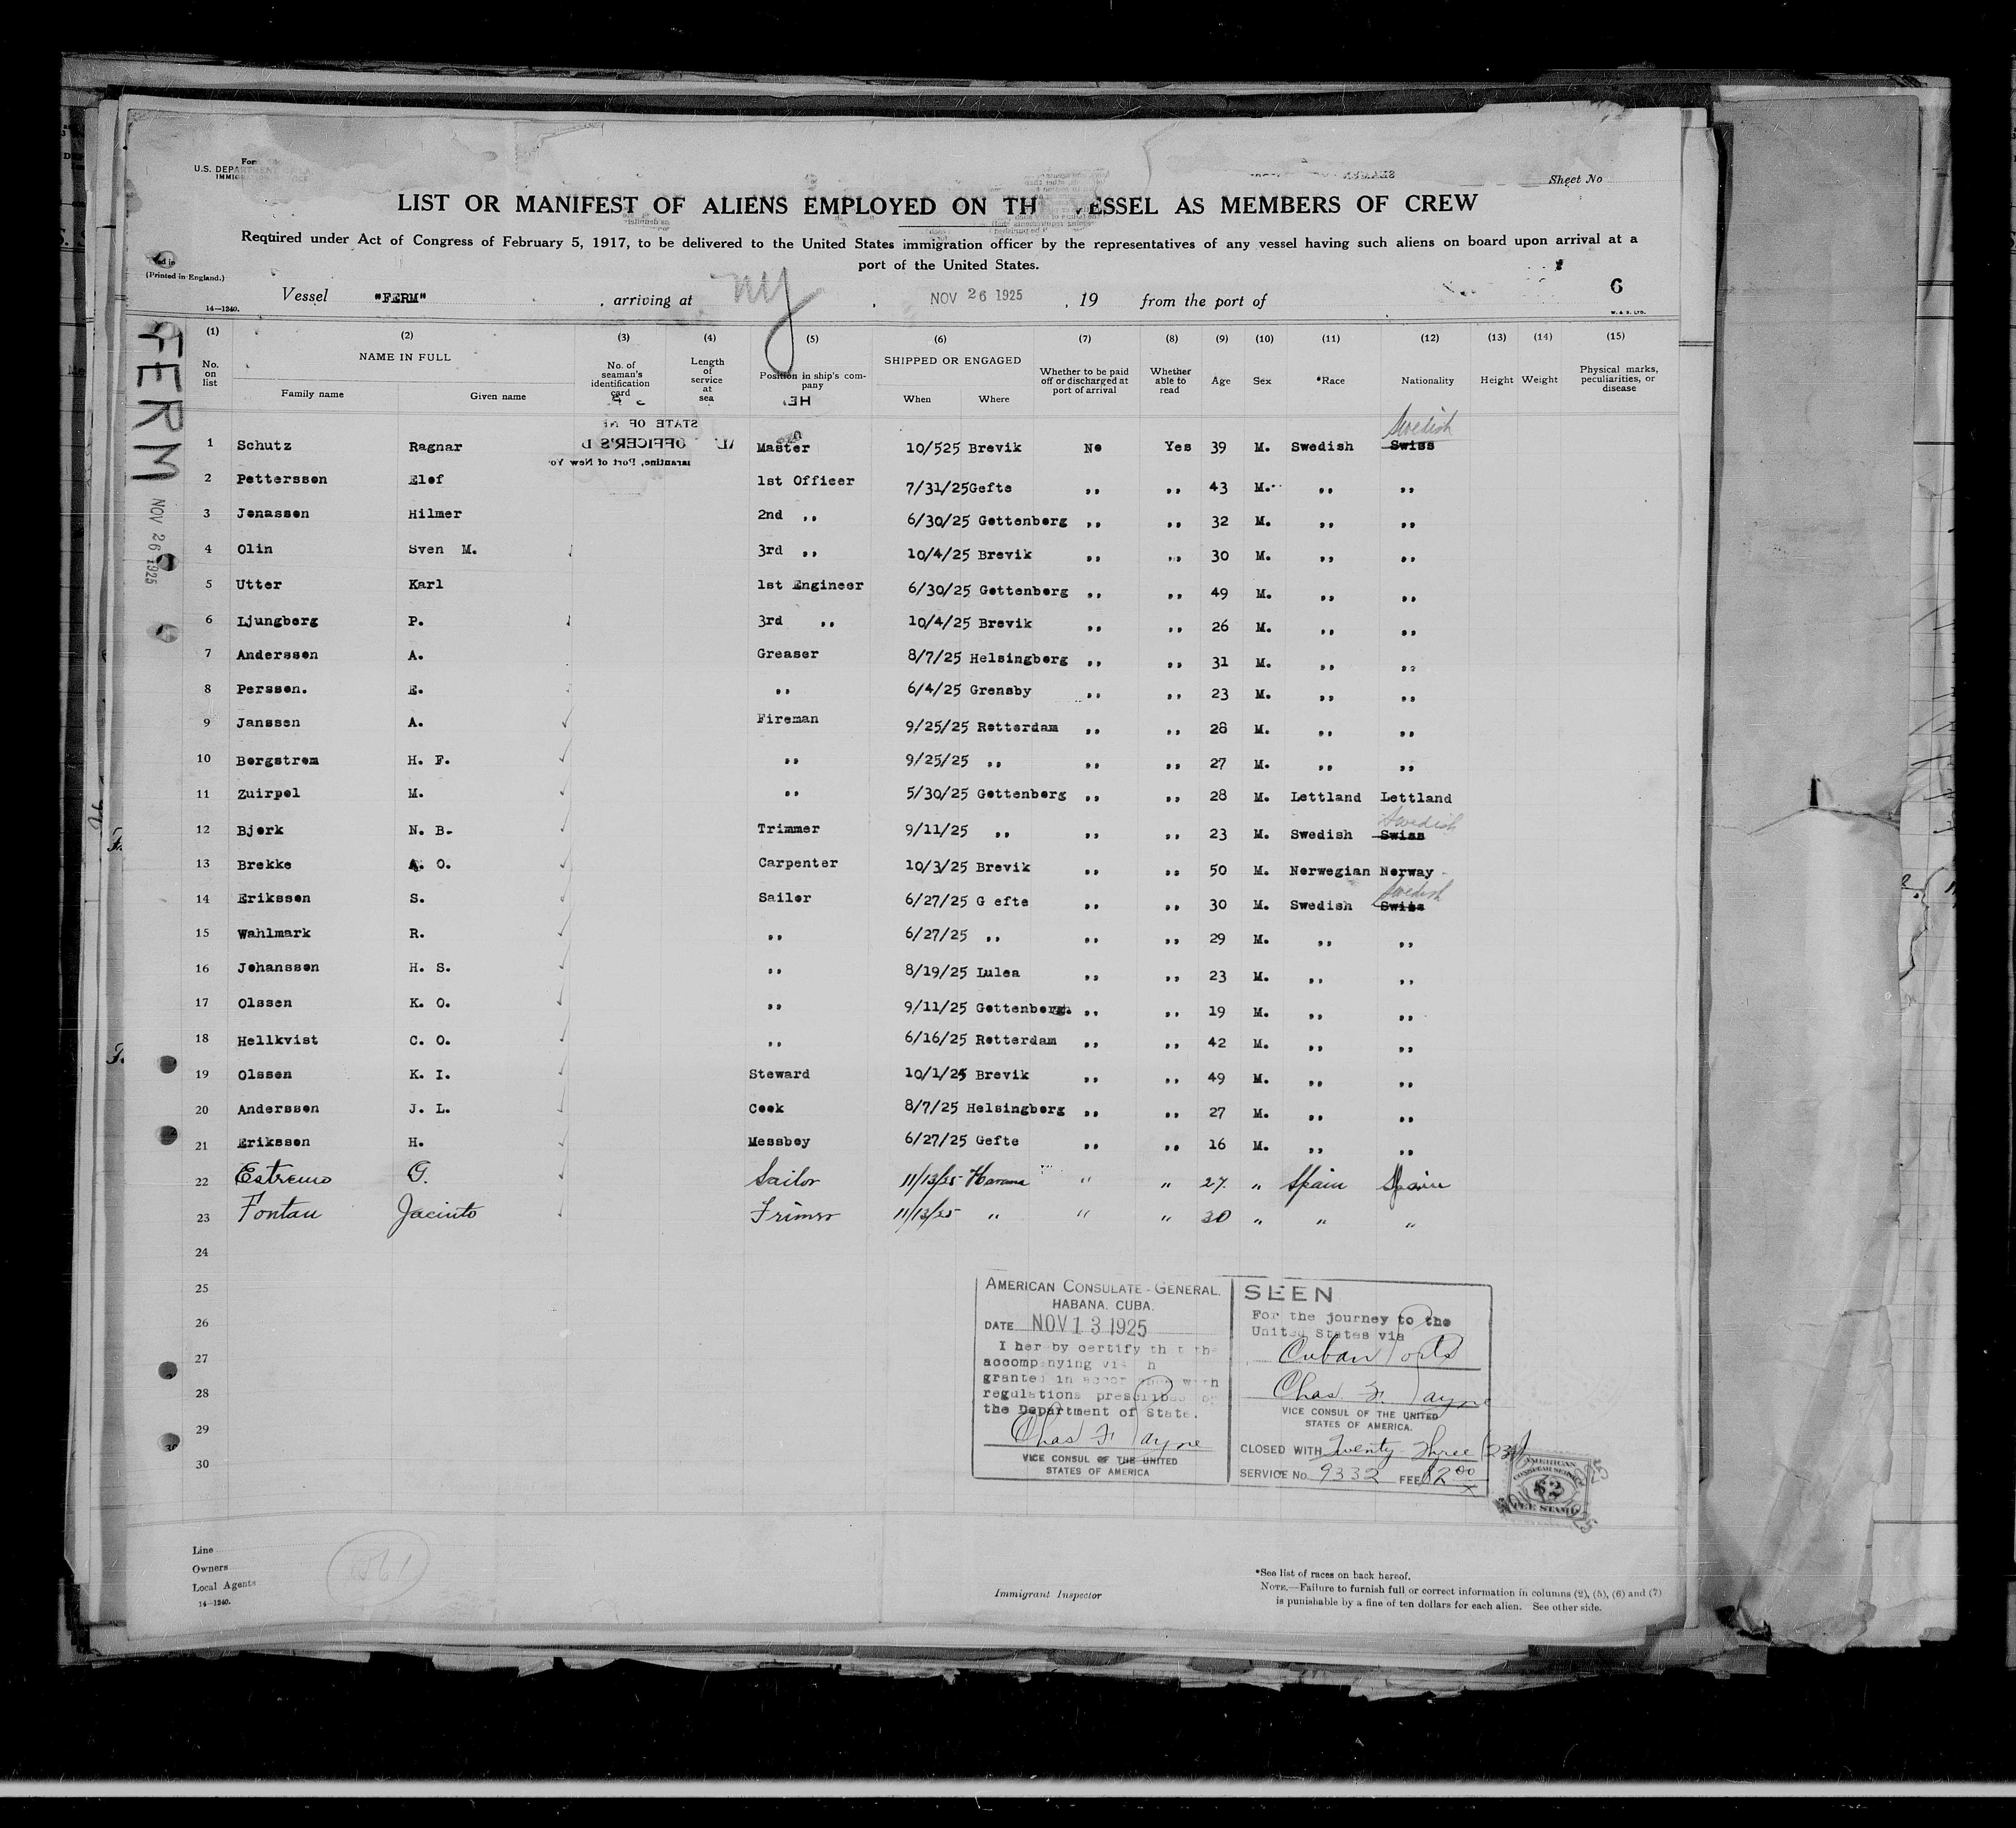 For
U.S. DEPARTMENT
IMMIG
Sheet No
LIST OR MANIFEST OF ALIENS EMPLOYED ON TH VESSEL AS MEMBERS OF CREW
Required under Act of Congress of February 5, 1917, to be delivered to the United States immigration officer by the representatives of any vessel having such aliens on board upon arrival at a
port of the United States.
(Printed in England.)
Vessel "FERM" , arriving at NY , NOV 26 1925 , 19 from the port of 6
14—1240. W. & S. LTD.
FERM
NOV 26 1925
(1) (2) (3) (4) (5) (6) (7) (8) (9) (10) (11) (12) (13) (14) (15)
No. on list NAME IN FULL Family name Given name No. of seaman's identification card Length of service at sea Position in ship's company SHIPPED OR ENGAGED When Where Whether to be paid off or discharged at port of arrival Whether able to read Age Sex *Race Nationality Height Weight Physical marks, peculiarities, or disease
STATE OF NE
OFFICER'S D
uarantine, Port of New Yo
Swedish
1 Schutz Ragnar Master 10/525 Brevik No Yes 39 M. Swedish Swiss
2 Pettersson Elof 1st Officer 7/31/25Gefte ,, ,, 43 M. ,, ,,
3 Jonasson Hilmer 2nd ,, 6/30/25 Gottenborg ,, ,, 32 M. ,, ,,
4 Olin Sven M. 3rd ,, 10/4/25 Brevik ,, ,, 30 M. ,, ,,
5 Utter Karl 1st Engineer 6/30/25 Gottenborg ,, ,, 49 M. ,, ,,
6 Ljungberg P. 3rd ,, 10/4/25 Brevik ,, ,, 26 M. ,, ,,
7 Andersson A. Greaser 8/7/25 Helsingborg ,, ,, 31 M. ,, ,,
8 Persson. E. ,, 6/4/25 Grensby ,, ,, 23 M. ,, ,,
9 Janssen A. Fireman 9/25/25 Rotterdam ,, ,, 28 M. ,, ,,
10 Bergstrom H. F. ,, 9/25/25 ,, ,, ,, 27 M. ,, ,,
11 Zuirpel M. ,, 5/30/25 Gottenborg ,, ,, 28 M. Lettland Lettland
Swedish
12 Bjork N. B. Trimmer 9/11/25 ,, ,, ,, 23 M. Swedish Swiss
13 Brekke A. O. Carpenter 10/3/25 Brevik ,, ,, 50 M. Norwegian Norway
Swedish
14 Eriksson S. Sailor 6/27/25 G efte ,, ,, 30 M. Swedish Swiss
15 Wahlmark R. ,, 6/27/25 ,, ,, ,, 29 M. ,, ,,
16 Johansson H. S. ,, 8/19/25 Lulea ,, ,, 23 M. ,, ,,
17 Olssen K. O. ,, 9/11/25 Gottenborg. ,, ,, 19 M. ,, ,,
18 Hellkvist C. O. ,, 6/16/25 Rotterdam ,, ,, 42 M. ,, ,,
19 Olssen K. I. Steward 10/1/25 Brevik ,, ,, 49 M. ,, ,,
20 Andersson J. L. Cook 8/7/25 Helsingborg ,, ,, 27 M. ,, ,,
21 Eriksson H. Messboy 6/27/25 Gefte ,, ,, 16 M. ,, ,,
22 Estremo G. Sailor 11/13/25 Havana " " 27. " Spain Spain
23 Fontan Jacinto Trimer 11/13/25 " " " 30 " " "
24
25
26
27
28
29
30
AMERICAN CONSULATE-GENERAL.
HABANA. CUBA.
DATE NOV 13 1925
I her by certify th t the
accompanying vis h
granted in accor with
regulations prescribed by
the Department of State.
Chas F Payne
VICE CONSUL OF THE UNITED
STATES OF AMERICA
SEEN
For the journey to the
United States via
Cuban Ports
Chas. F. Payne
VICE CONSUL OF THE UNITED
STATES OF AMERICA.
CLOSED WITH Twenty Three (23)
SERVICE No. 9332 FEE $2.00
AMERICAN
CONSULAR SERVICE
$2
FEE STAMP
Line
Owners
Local Agents
14—1240.
Immigrant Inspector
*See list of races on back hereof.
NOTE.—Failure to furnish full or correct information in columns (2), (5), (6) and (7)
is punishable by a fine of ten dollars for each alien. See other side.